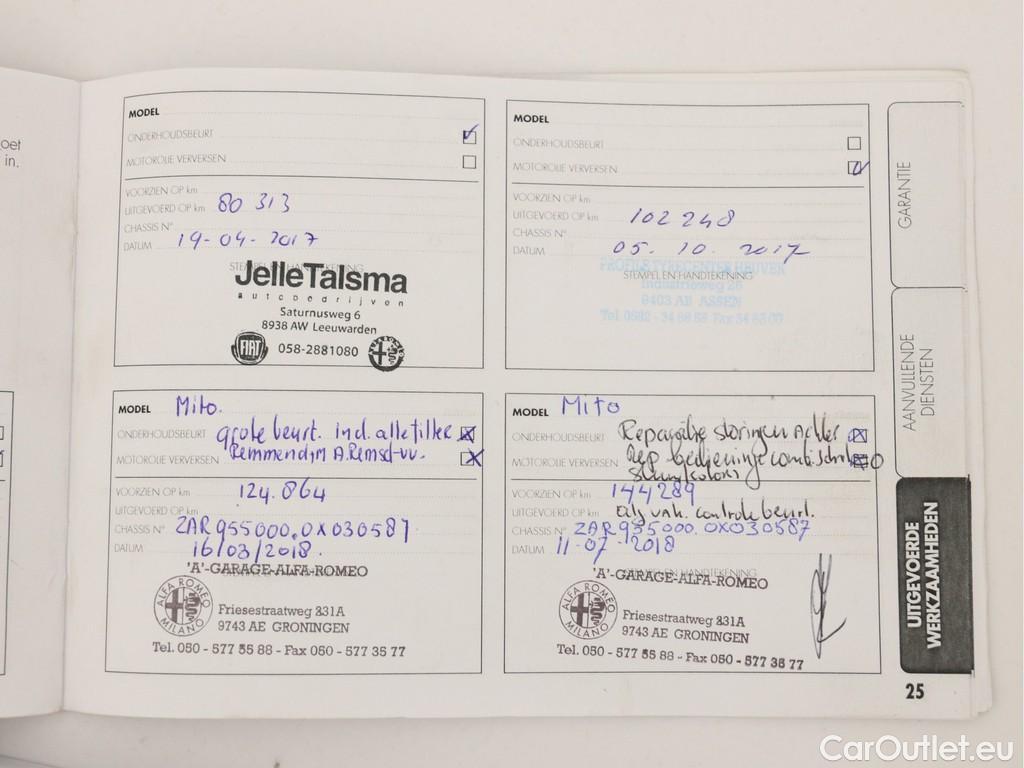 oet
in.
MODEL
ONDERHOUDSBEURT
MOTOROLIE VERVERSEN
VOORZIEN OP km
UITGEVOERD OP km 80 313
CHASSIS N°
DATUM 19-04-2017
STEMPEL EN HANDTEKENING
JelleTalsma
autobedrijven
Saturnusweg 6
8938 AW Leeuwarden
FIAT 058-2881080
MODEL
ONDERHOUDSBEURT
MOTOROLIE VERVERSEN
VOORZIEN OP km
UITGEVOERD OP km 102 248
CHASSIS N°
DATUM 05. 10. 2017
PROFILE TYRECENTER HEUVEN
STEMPEL EN HANDTEKENING
Industrieweg 26
9403 AB ASSEN
MODEL Mito.
ONDERHOUDSBEURT grote beurt. incl. alle filters
MOTOROLIE VERVERSEN
VOORZIEN OP km 124.864
UITGEVOERD OP km
CHASSIS N° ZAR955000.0X030587
DATUM 16/03/2018.
'A'-GARAGE-ALFA-ROMEO
ALFA ROMEO
MILANO
Friesestraatweg 231A
9743 AE GRONINGEN
Tel. 050 - 577 55 88 - Fax 050 - 577 35 77
MODEL Mito
ONDERHOUDSBEURT Reparatie storingen Achter
MOTOROLIE VERVERSEN Rep bediening combischakelaar
VOORZIEN OP km 144289
UITGEVOERD OP km controle beurt.
CHASSIS N° ZAR955000.0X030587
DATUM 11-07-2018
STEMPEL EN HANDTEKENING
'A'-GARAGE-ALFA-ROMEO
ALFA ROMEO
MILANO
Friesestraatweg 231A
9743 AE GRONINGEN
Tel. 050 - 577 55 88 - Fax 050 - 577 35 77
GARANTIE
AANVULLENDE
DIENSTEN
UITGEVOERDE
WERKZAAMHEDEN
25
CarOutlet.eu